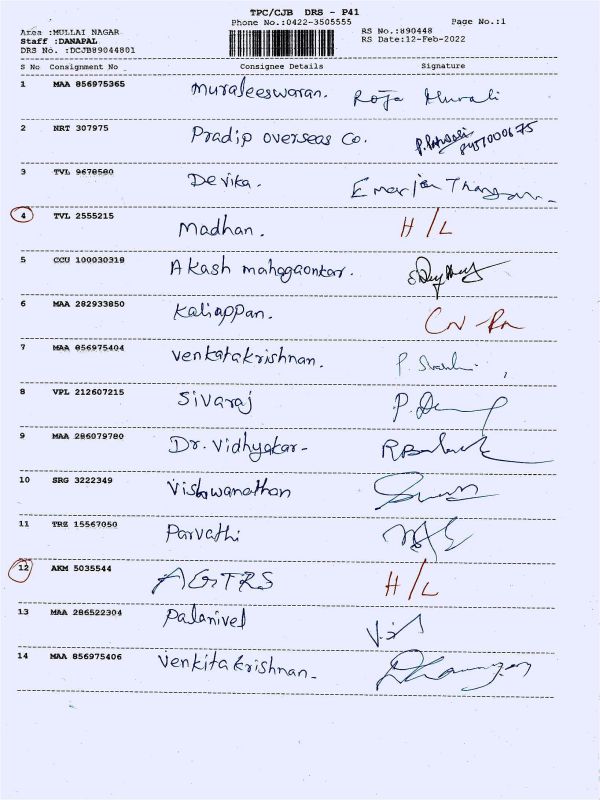 TPC/CJB DRS - P41
Phone No.:0422-3505555 Page No.:1
Area :MULLAI NAGAR RS No.:890448
Staff :DANAPAL RS Date:12-Feb-2022
DRS No. :DCJB89044801
S No Consignment No Consignee Details Signature
1 MAA 856975365 Muraleeswaran. Roja Murali
2 NRT 307975 Pradip overseas Co.
3 TVL 9678580 Devika.
4 TVL 2555215 Madhan. H/L
5 CCU 100030318 Akash mahagaonkar.
6 MAA 282933850 Kaliappan.
7 MAA 856975404 Venkatakrishnan.
8 VPL 212607215 Sivaraj
9 MAA 286079780 Dr. Vidhyakar-
10 SRG 3222349 Viswanathan
11 TRZ 15567050 Parvathi
12 AKM 5035544 H/L
13 MAA 286522304 Palanivel
14 MAA 856975406 Venkitakrishnan-